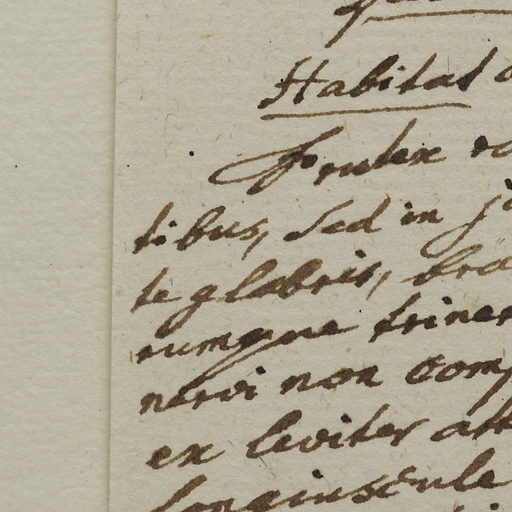 Habitat
Frutex ra
tibus, sed in
te glabris, bra
rumque triner
nervi non comp
ex leviter att
longiuscule